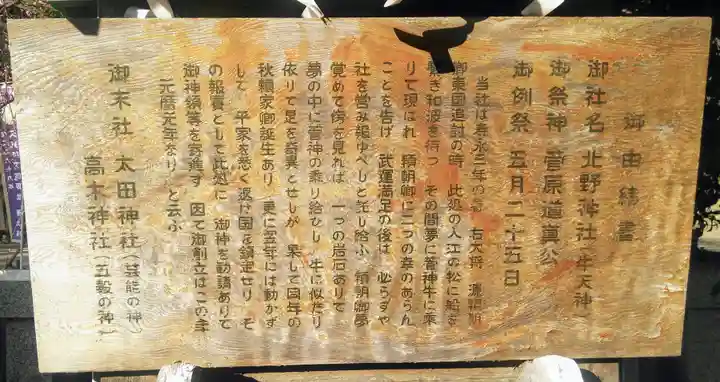 御由緒書
御社名 北野神社(牛天神)
御祭神 菅原道真公
御例祭 五月二十五日
当社は寿永三年の春 右大将 源頼朝
卿東国追討の時 此処の入江の松に船を
繋ぎ和波を待つ その間夢に菅神牛に乗
りて現はれ 頼朝卿に二つの幸のあらん
ことを告げ 武運満足の後は 必らずや
社を営み報ゆべしと託し給ふ 頼朝卿夢
覚めて傍を見れば 一つの岩石ありて
夢の中に菅神の乗り給ひし 牛に似たり
依りて是を奇異とせしが 果して同年の
秋頼家卿誕生あり 更に翌年には動かず
して 平家を悉く返け国を鎮定せり そ
の報賽として此処に 御神を勧請ありて
御神領等を寄進す 因て御創立はこの年
元暦元年なり と云ふ
御末社 太田神社(芸能の神)
高木神社(五穀の神)